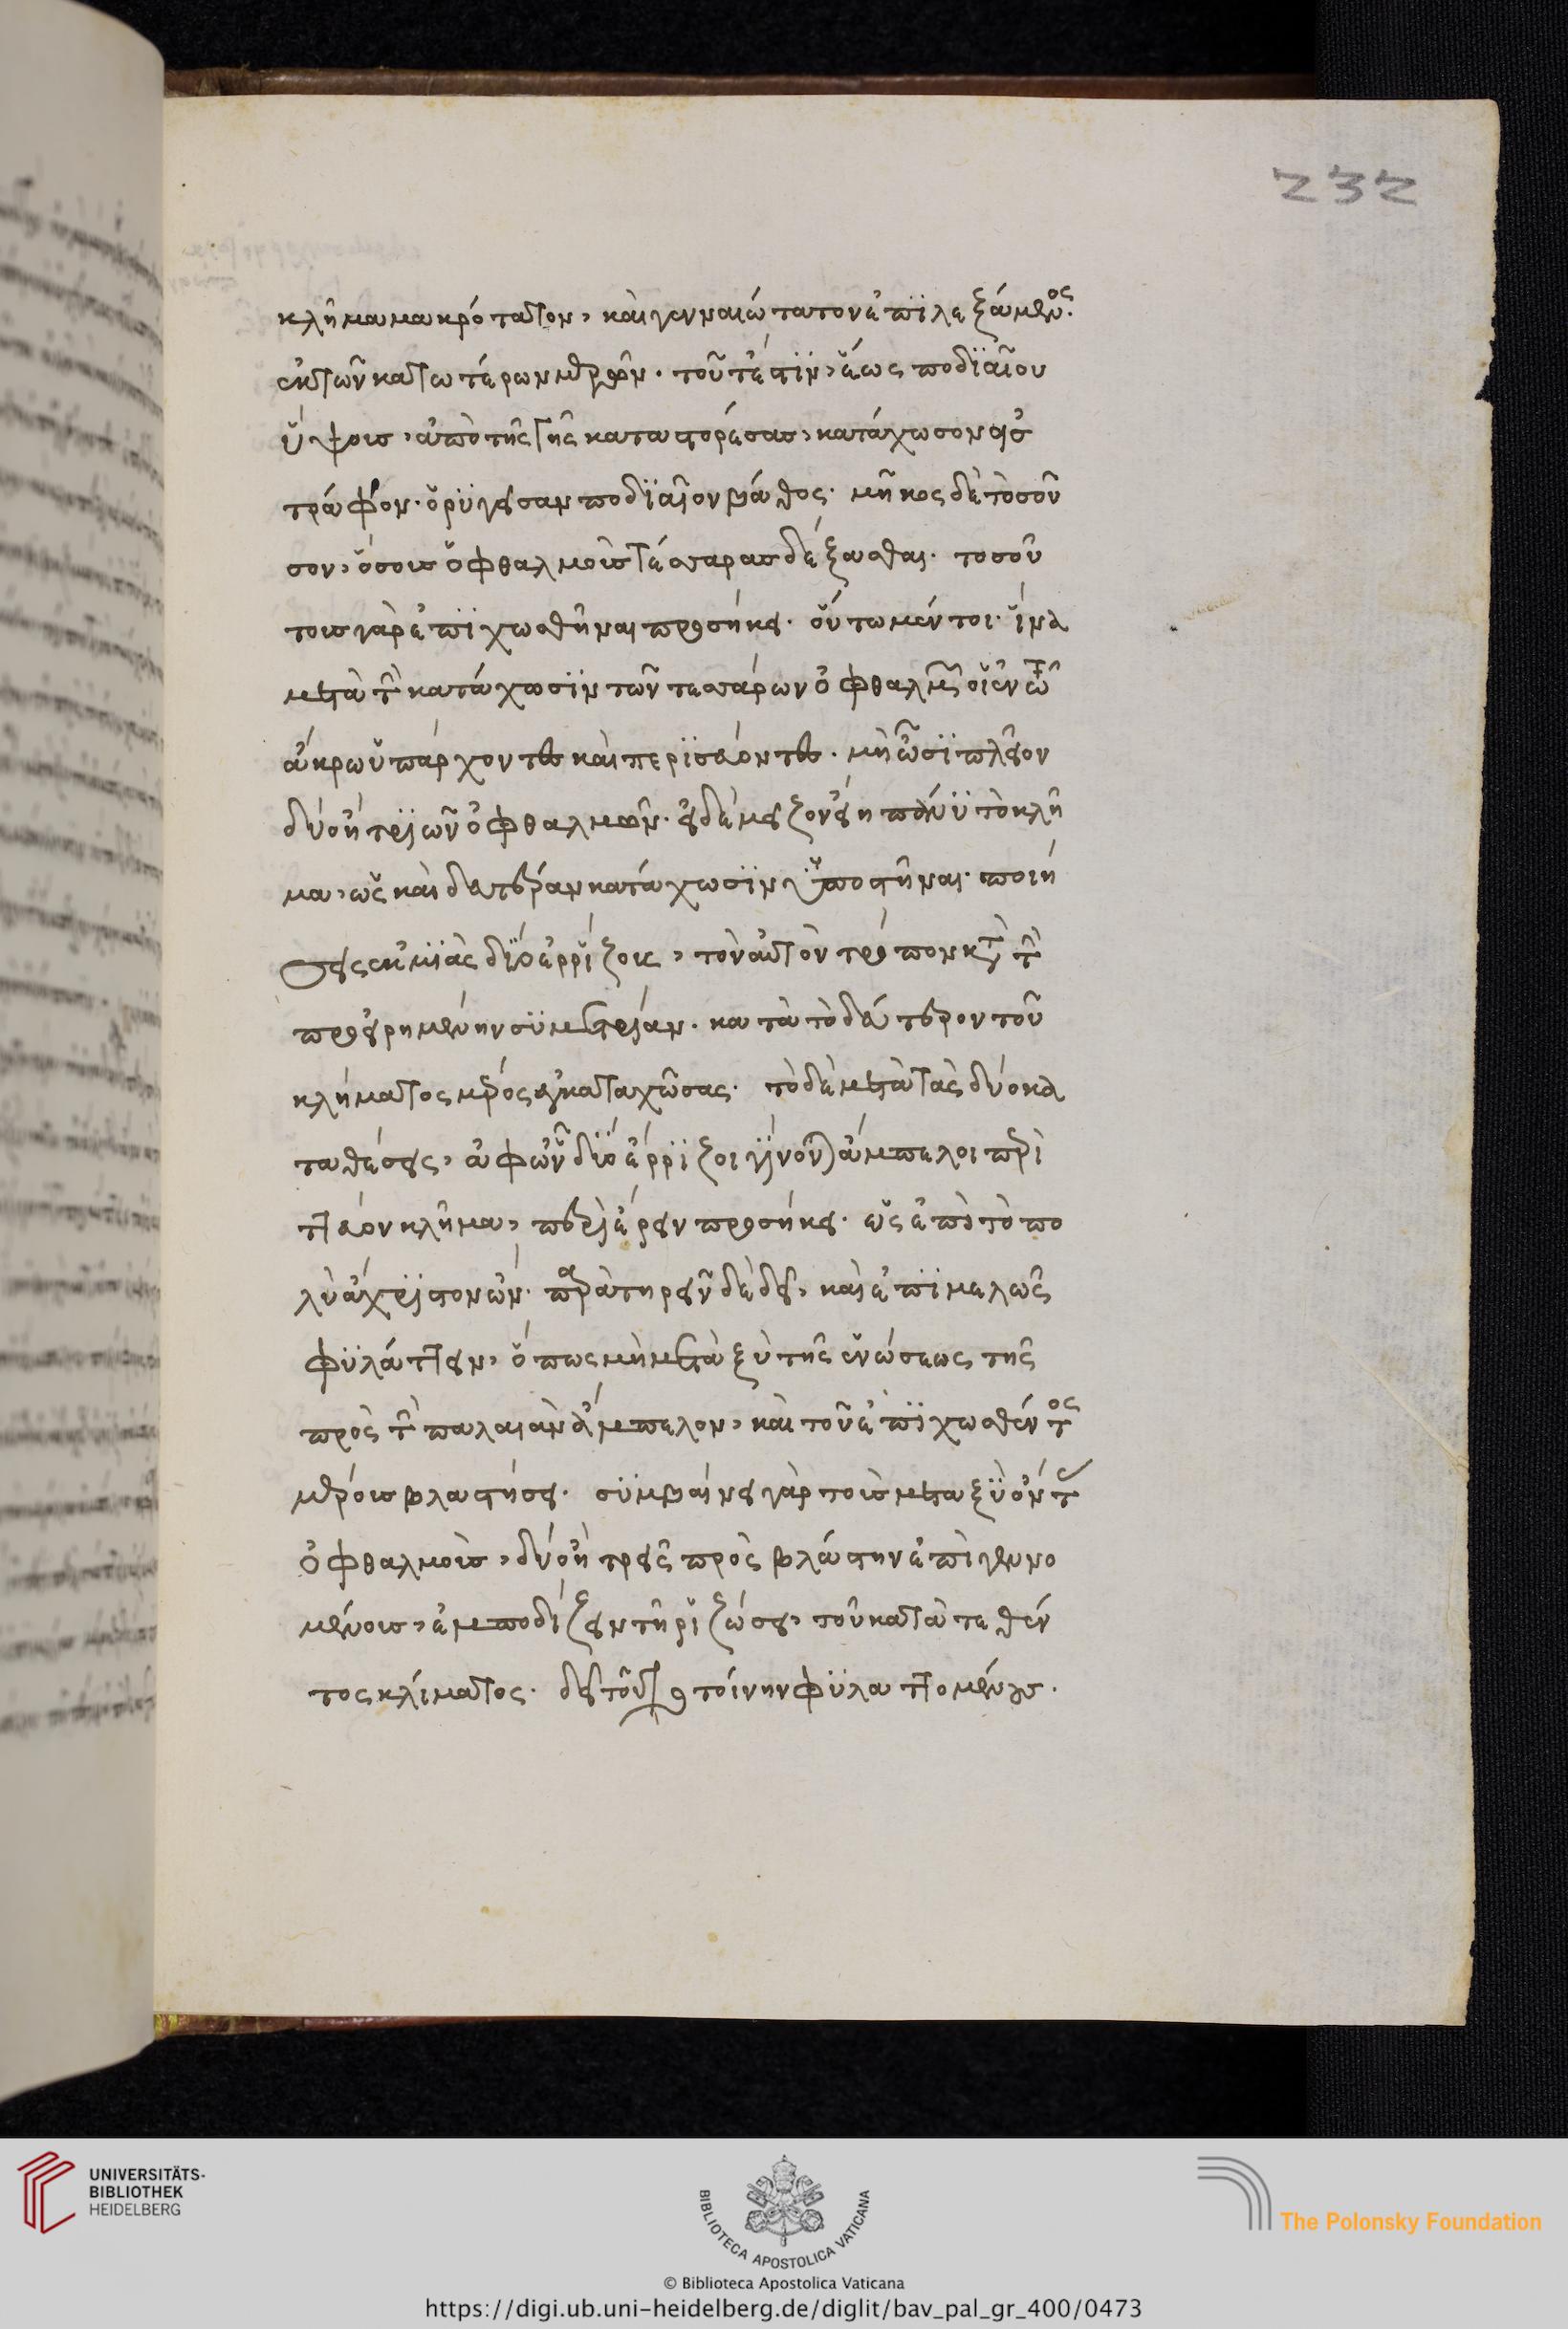 232
κλῆμα μακρότατον, καὶ γενναιώτατον ἐπιλεξάμενος.
ἐκ τῶν κατωτέρων μερῶν. τοῦτέστιν, ἕως ποδιαίου
ὕψους, ἀπὸ τῆς γῆς καταστορέσας, κατάχωσον εἰς
τράφον. ὀρυγεῖσαν ποδιαῖον βάθος. μῆκος δὲ τοσοῦ
σον, ὅσοις ὀφθαλμοῖς τέσσαρας δέξασθαι. τοσού
τους γὰρ ἐπιχωσθῆναι προσήκει. οὕτω μέντοι. ἵνα
μετὰ τὴν κατάχωσιν τῶν τεσσάρων ὀφθαλμῶν οἱ ἐν τῷ
ἄκρω ὑπάρχοντες καὶ περισεύοντες. μὴ ὦσι πλεῖον
δύο ἢ τριῶν ὀφθαλμῶν. εἰ δὲ μεῖζον εἴη πολὺ τὸ κλῆ
μα, ὡς καὶ δευτέραν κατάχωσιν ὑποστῆναι. ποιή
σεις ἐκ μιᾶς δύο ἐρρίζους, τὸν αὐτὸν τρόπον κατὰ τὴν
προειρημένην συμμετρίαν. κατὰ τὸ δεύτερον τοῦ
κλήματος μέρος ἐγκαταχώσας. τὸ δὲ μετὰ τὰς δύο κα
ταθέσεις, ἀφ ὧν δύο ἔρριζοι γίνονται ἄμπελοι περι
ττεῦον κλῆμα, περιαίρειν προσήκει. ὡς ἐπὶ τὸ πο
λὺ ἄχρηστον ὤν. παρατηρεῖν δὲ δεῖ, καὶ ἐπιμελῶς
φυλάττειν, ὅπως μὴ μεταξὺ τῆς ἑνώσεως τῆς
πρὸς τὴν παλαιὰν ἄμπελον, καὶ τοῦ ἐπιχωσθέντος
μέρους βλαστήσει. συμβαίνει γὰρ τοῖς μεταξὺ ὄντας
ὀφθαλμοῖς, δύο ἢ τρεῖς πρὸς βλάστην ἐπιγενο
μένοις, ἐμποδίζειν τῇ ῥιζώσει, τοῦ κατατεθέν
τος κλίματος. δεῖ τοῦτο τοίνην φυλαττομένους.
UNIVERSITÄTS-
BIBLIOTHEK
HEIDELBERG
BIBLIOTECA APOSTOLICA VATICANA
The Polonsky Foundation
© Biblioteca Apostolica Vaticana
https://digi.ub.uni-heidelberg.de/diglit/bav_pal_gr_400/0473